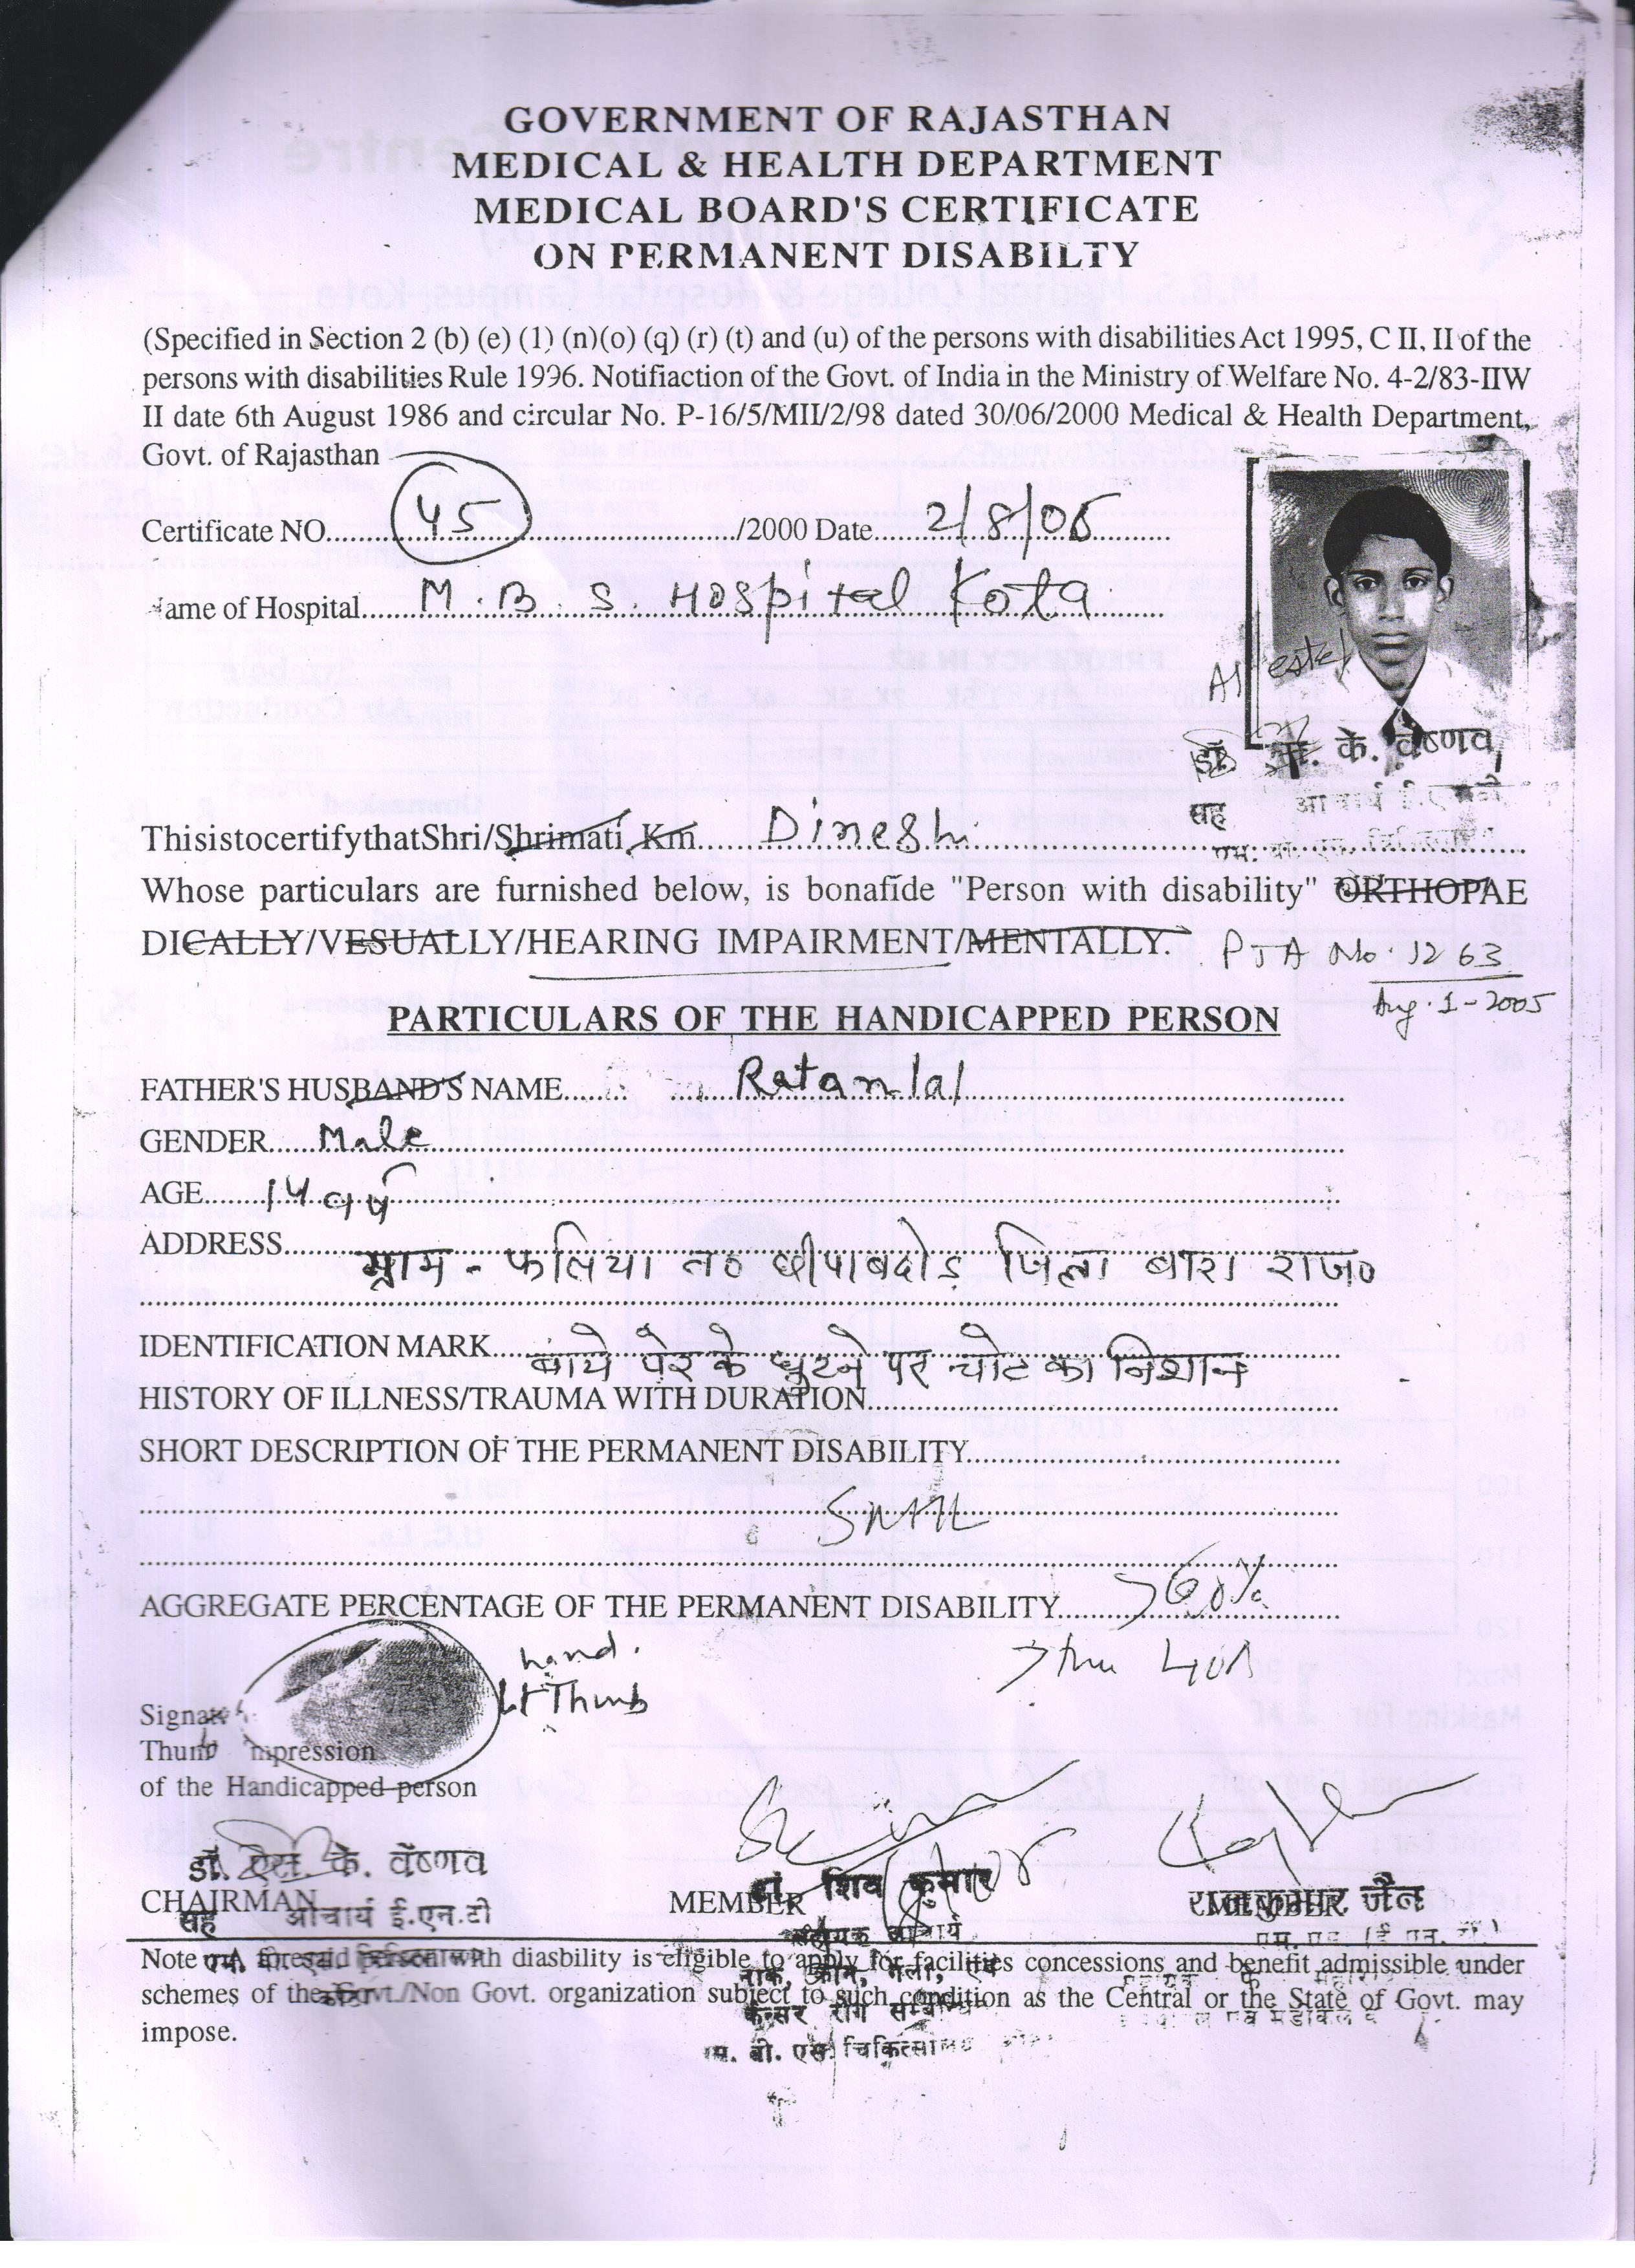 GOVERNMENT OF RAJASTHAN
MEDICAL & HEALTH DEPARTMENT
MEDICAL BOARD'S CERTIFICATE
ON PERMANENT DISABILTY
(Specified in Section 2 (b) (e) (1) (n)(o) (q) (r) (t) and (u) of the persons with disabilities Act 1995, C II, II of the
persons with disabilities Rule 1996. Notifiaction of the Govt. of India in the Ministry of Welfare No. 4-2/83-IIW
II date 6th August 1986 and circular No. P-16/5/MII/2/98 dated 30/06/2000 Medical & Health Department,
Govt. of Rajasthan
Certificate NO. 45 /2000 Date 2/8/06
ame of Hospital M.B.S. Hospital Kota
के. वैष्णव
सह आचार्य
ThisistocertifythatShri/Shrimati, Km. Dinesh
Whose particulars are furnished below, is bonafide "Person with disability" ORTHOPAE
DICALLY/VESUALLY/HEARING IMPAIRMENT/MENTALLY. PTA No. 1263
Aug. 1-2005
PARTICULARS OF THE HANDICAPPED PERSON
FATHER'S HUSBAND'S NAME Ratanlal
GENDER Male
AGE 14 वर्ष
ADDRESS
ग्राम - फलिया त० छीपाबदोड जिला बारा राज०
IDENTIFICATION MARK बाये पेर के घुटने पर चोट का निशान
HISTORY OF ILLNESS/TRAUMA WITH DURATION
SHORT DESCRIPTION OF THE PERMANENT DISABILITY
SNHL
AGGREGATE PERCENTAGE OF THE PERMANENT DISABILITY >60%
hand.
Lt Thumb
Thumb mpression
of the Handicapped person
डॉ. एस. के. वैष्णव
डां शिव कुमार
राजकुमार जैन
CHAIRMAN MEMBER
सह आचार्य ई.एन.टी
सहायक आचार्य
Note A foresaid with diasbility is eligible to apply for facilities concessions and benefit admissible under
नाक, कान, गला, एवं
schemes of the Govt./Non Govt. organization subject to such condition as the Central or the State of Govt. may
कैन्सर रोग
impose.
एम. बी. एस. चिकित्सालय